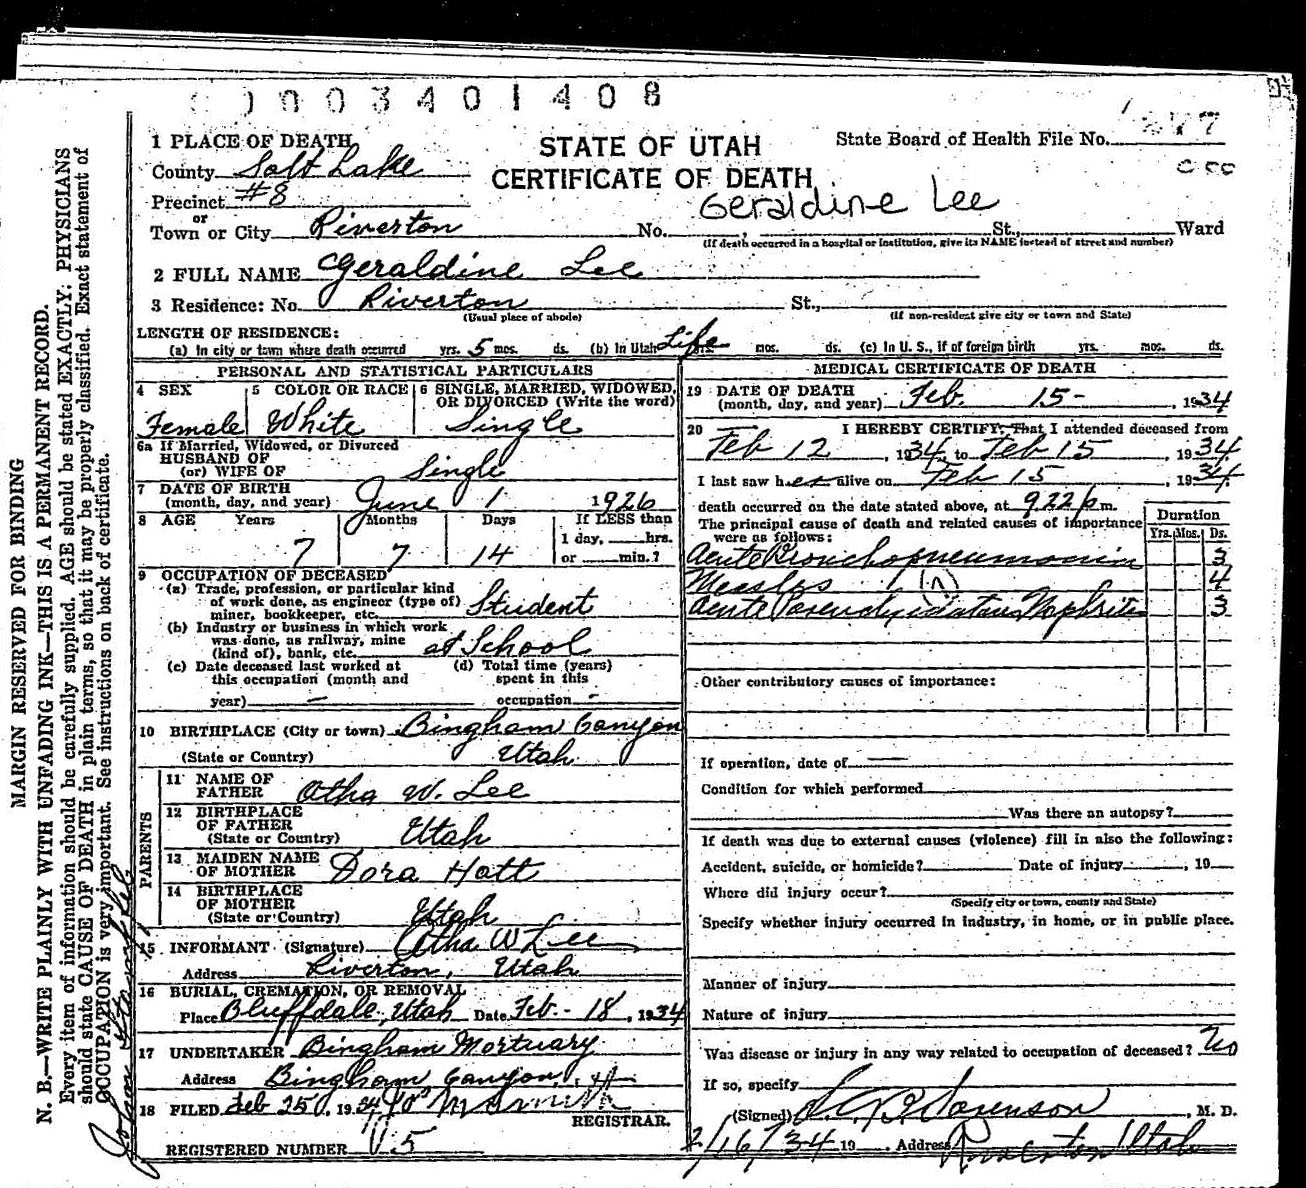 0003401408
STATE OF UTAH
CERTIFICATE OF DEATH
State Board of Health File No.
Geraldine Lee
1 PLACE OF DEATH
County Salt Lake
Precinct #8
or
Town or City Riverton No. , St., Ward
(If death occurred in a hospital or institution, give its NAME instead of street and number)
2 FULL NAME Geraldine Lee
3 Residence: No. Riverton St.,
(Usual place of abode) (If non-resident give city or town and State)
LENGTH OF RESIDENCE:
(a) In city or town where death occurred yrs. 5 mos. ds. (b) In Utah Life yrs. mos. ds. (c) In U. S., if of foreign birth yrs. mos. ds.
PERSONAL AND STATISTICAL PARTICULARS
4 SEX
Female
5 COLOR OR RACE
White
6 SINGLE, MARRIED, WIDOWED,
OR DIVORCED (Write the word)
Single
6a If Married, Widowed, or Divorced
HUSBAND OF
(or) WIFE OF Single
7 DATE OF BIRTH
(month, day, and year) June 1 1926
8 AGE Years Months Days If LESS than
1 day, hrs.
7 7 14 or min.?
9 OCCUPATION OF DECEASED
(a) Trade, profession, or particular kind
of work done, as engineer (type of)
miner, bookkeeper, etc. Student
(b) Industry or business in which work
was done, as railway, mine
(kind of), bank, etc. at School
(c) Date deceased last worked at
this occupation (month and
year) —
(d) Total time (years)
spent in this
occupation -
10 BIRTHPLACE (City or town) Bingham Canyon
(State or Country) Utah
PARENTS
11 NAME OF
FATHER Otha W. Lee
12 BIRTHPLACE
OF FATHER
(State or Country) Utah
13 MAIDEN NAME
OF MOTHER Dora Hott
14 BIRTHPLACE
OF MOTHER
(State or Country) Utah
15 INFORMANT (Signature) Otha W Lee
Address Riverton, Utah
16 BURIAL, CREMATION, OR REMOVAL
Place Bluffdale, Utah Date Feb - 18, 1934
17 UNDERTAKER Bingham Mortuary
Address Bingham Canyon,
18 FILED Feb 25, 1934
REGISTRAR.
REGISTERED NUMBER 5
MEDICAL CERTIFICATE OF DEATH
19 DATE OF DEATH
(month, day, and year) Feb. 15- , 1934
20 I HEREBY CERTIFY, That I attended deceased from
Feb 12, 1934, to Feb 15, 1934
I last saw her alive on Feb 15, 1934
death occurred on the date stated above, at 9 22 p m.
The principal cause of death and related causes of importance
were as follows:
Duration
Yrs. Mos. Ds.
Acute Bronchopneumonia 3
Measles 4
Acute Nephritis 3
Other contributory causes of importance:
If operation, date of —
Condition for which performed
Was there an autopsy?
If death was due to external causes (violence) fill in also the following:
Accident, suicide, or homicide? Date of injury , 19
Where did injury occur?
(Specify city or town, county and State)
Specify whether injury occurred in industry, in home, or in public place.
Manner of injury
Nature of injury
Was disease or injury in any way related to occupation of deceased? No
If so, specify
(Signed) Sorenson, M. D.
2/16/34 19 Address Riverton Utah
MARGIN RESERVED FOR BINDING
N. B.—WRITE PLAINLY WITH UNFADING INK—THIS IS A PERMANENT RECORD.
Every item of information should be carefully supplied. AGE should be stated EXACTLY; PHYSICIANS
should state CAUSE OF DEATH in plain terms, so that it may be properly classified. Exact statement of
OCCUPATION is very important. See instructions on back of certificate.